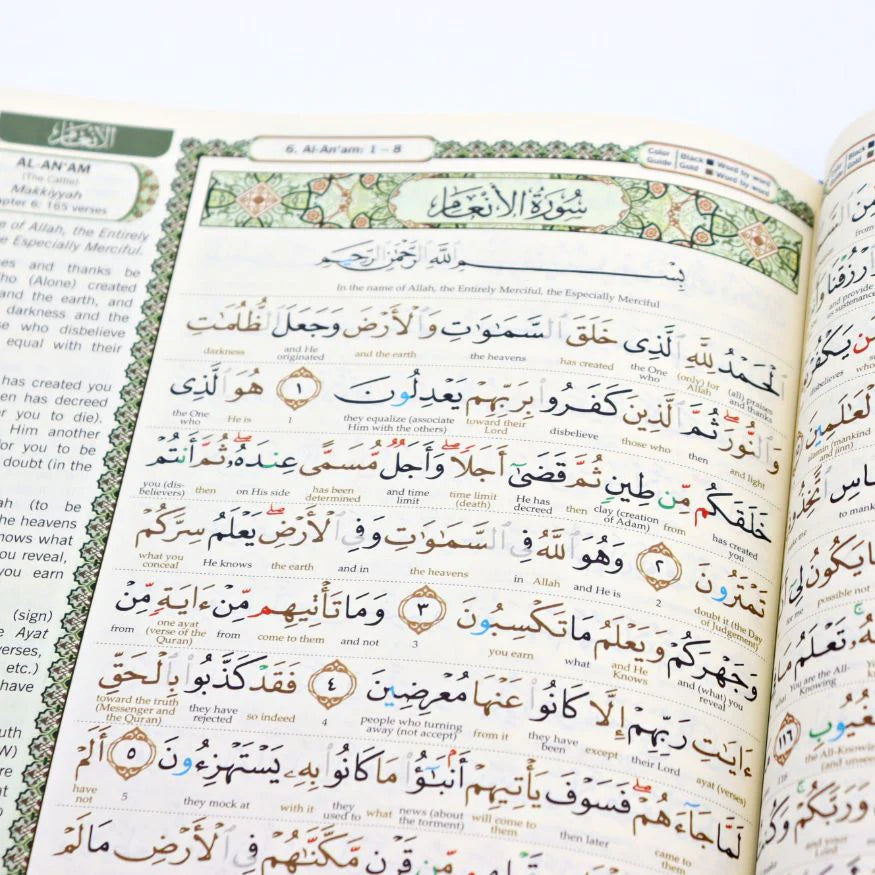 الأنعام
AL-AN'AM
(The Cattle)
Makkiyyah
apter 6: 165 verses
e of Allah, the Entirely
e Especially Merciful.
es and thanks be
ho (Alone) created
and the earth, and
darkness and the
se who disbelieve
equal with their
has created you
en has decreed
r you to die),
Him another
for you to be
doubt (in the
ah (to be
he heavens
nows what
ou reveal,
you earn
(sign)
e Ayat
verses,
etc.)
have
ruth
W)
6. Al-An'am: 1 – 8
Color Guide
Black Word by word
Gold Word by word
سُورَةُ الأَنْعَامِ
بِسْمِ ٱللَّهِ ٱلرَّحْمَٰنِ ٱلرَّحِيمِ
In the name of Allah, the Entirely Merciful, the Especially Merciful
ٱلْحَمْدُ لِلَّهِ ٱلَّذِى خَلَقَ ٱلسَّمَٰوَٰتِ وَٱلْأَرْضَ وَجَعَلَ ٱلظُّلُمَٰتِ
(all) praises and thanks (only) for Allah the One who has created the heavens and the earth and He originated darkness
وَٱلنُّورَ ۖ ثُمَّ ٱلَّذِينَ كَفَرُوا۟ بِرَبِّهِمْ يَعْدِلُونَ ١ هُوَ ٱلَّذِى
and light then those who disbelieve toward their Lord they equalize (associate Him with the others) 1 He is the One who
خَلَقَكُم مِّن طِينٍ ثُمَّ قَضَىٰٓ أَجَلًا ۖ وَأَجَلٌ مُّسَمًّى عِندَهُۥ ۖ ثُمَّ أَنتُمْ
has created you from clay (creation of Adam) then He has decreed time limit (death) and time limit has been determined on His side then you (disbelievers)
تَمْتَرُونَ ٢ وَهُوَ ٱللَّهُ فِى ٱلسَّمَٰوَٰتِ وَفِى ٱلْأَرْضِ ۖ يَعْلَمُ سِرَّكُمْ
doubt it (the Day of Judgement) 2 and He is Allah in the heavens and in the earth He knows what you conceal
وَجَهْرَكُمْ وَيَعْلَمُ مَا تَكْسِبُونَ ٣ وَمَا تَأْتِيهِم مِّنْ ءَايَةٍ مِّنْ
and (what) you reveal and He Knows what you earn 3 and not come to them from one ayat (verse of the Quran) from
ءَايَٰتِ رَبِّهِمْ إِلَّا كَانُوا۟ عَنْهَا مُعْرِضِينَ ٤ فَقَدْ كَذَّبُوا۟ بِٱلْحَقِّ
ayat (verses) their Lord except they have been from it people who turning away (not accept) 4 so indeed they have rejected toward the truth (Messenger and the Quran)
لَمَّا جَآءَهُمْ ۖ فَسَوْفَ يَأْتِيهِمْ أَنۢبَٰٓؤُا۟ مَا كَانُوا۟ بِهِۦ يَسْتَهْزِءُونَ ٥ أَلَمْ
came to them then later will come to them news (about the torment) what they used to with it they mock at 5 have not
قَرْنٍ مَّكَّنَّٰهُمْ فِى ٱلْأَرْضِ مَا لَمْ
from
and provide us sustenance
disbelieves
ٱلْعَٰلَمِينَ
alamin (mankind and jinn)
to mank
possible not
You are the All-Knowing
١١٦
116
the All-Knowing
وَرَبَّكُمْ
and your Lord